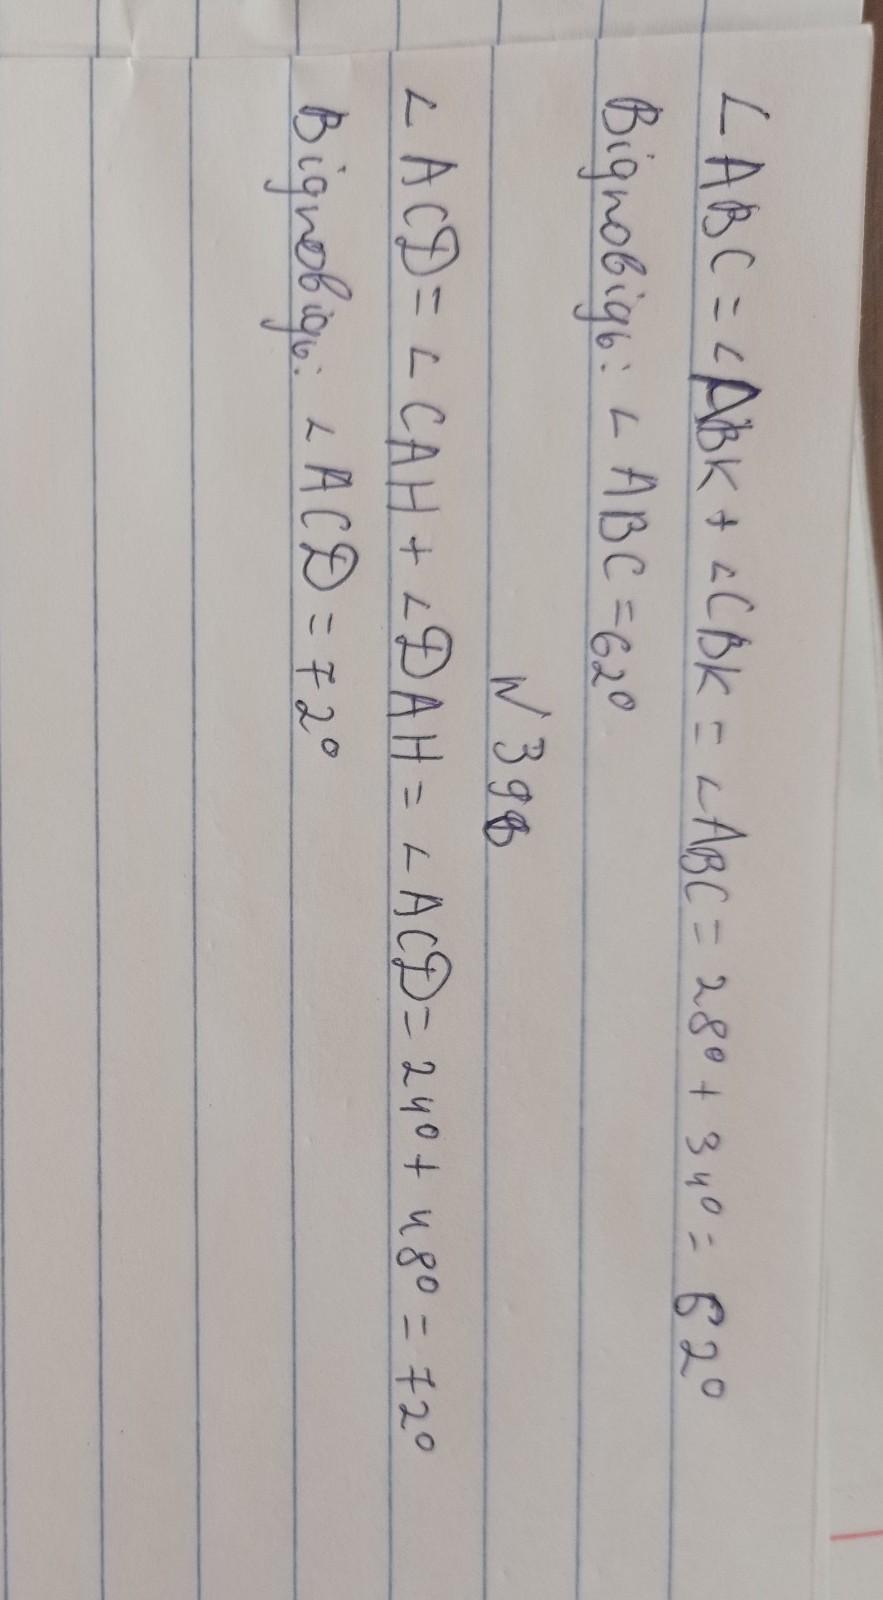 ∠ABC = ∠ABK + ∠CBK = ∠ABC = 28° + 34° = 62°
Відповідь: ∠ABC = 62°
№ 398
∠ACD = ∠CAH + ∠DAH = ∠ACD = 24° + 48° = 72°
Відповідь: ∠ACD = 72°